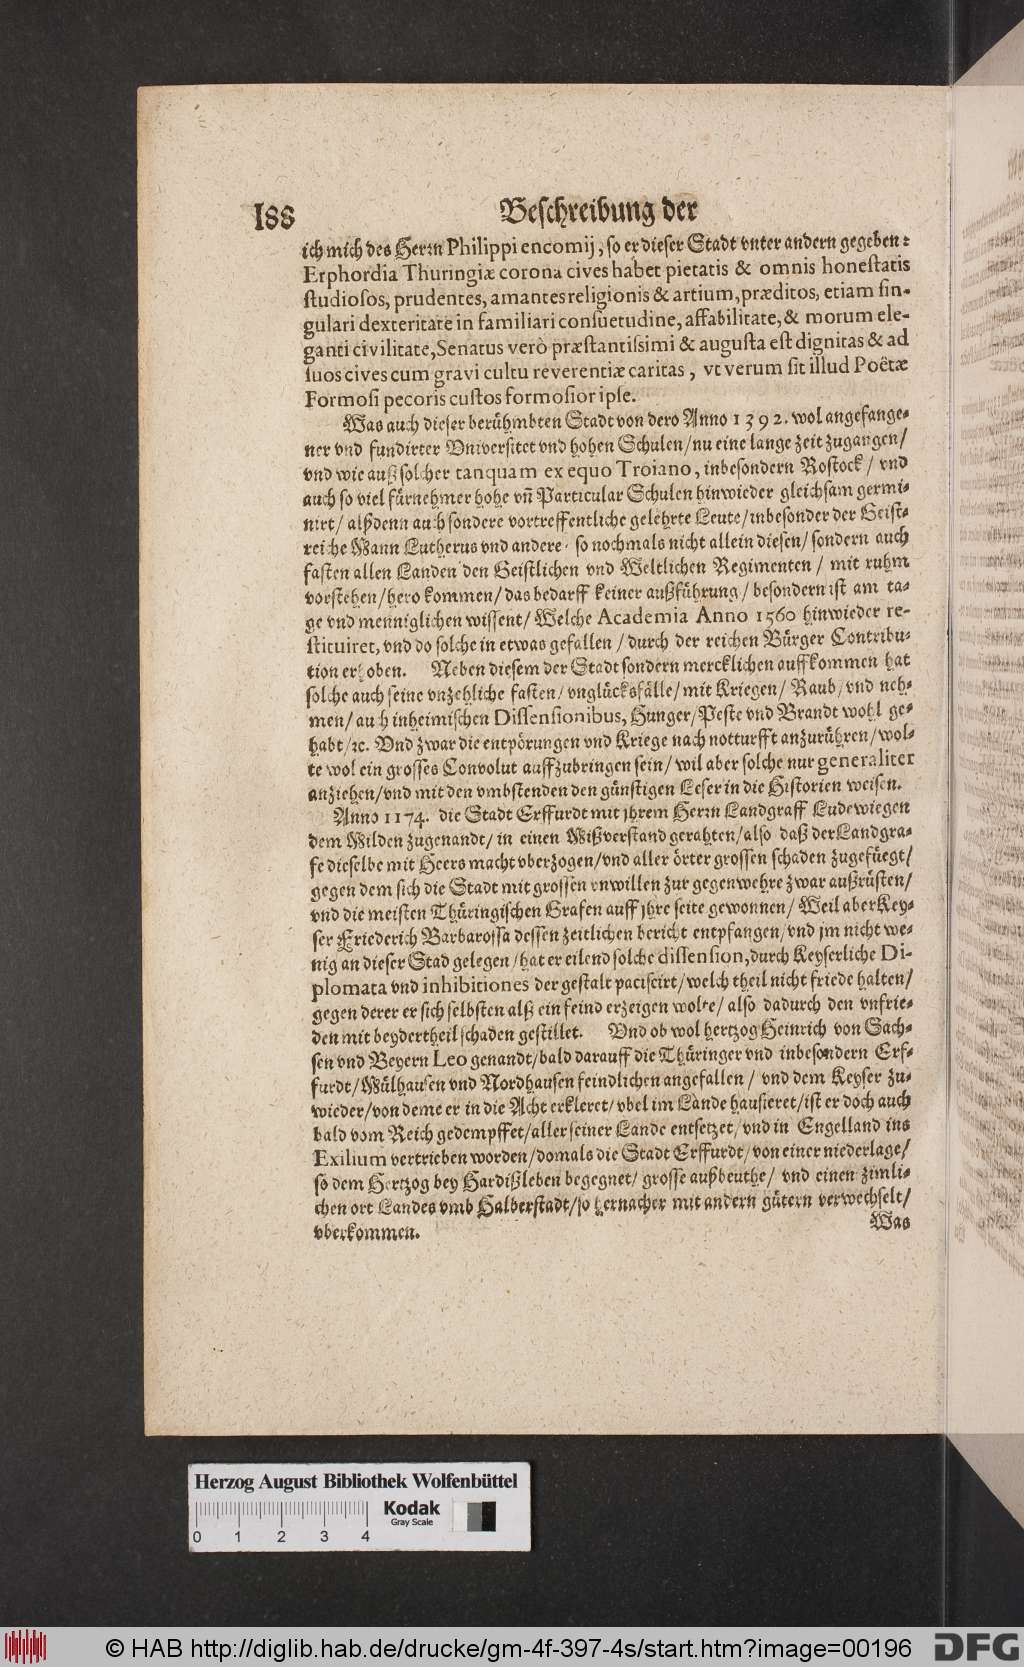 188 Beschreibung der
ich mich des Herrn Philippi encomij, so er dieser Stadt vnter andern gegeben:
Erphordia Thuringiæ corona cives habet pietatis & omnis honestatis
studiosos, prudentes, amantes religionis & artium, præditos, etiam sin-
gulari dexteritate in familiari consuetudine, affabilitate, & morum ele-
ganti civilitate, Senatus verò præstantissimi & augusta est dignitas & ad
suos cives cum gravi cultu reverentiæ caritas, vt verum sit illud Poêtæ
Formosi pecoris custos formosior ipse.
Was auch dieser berühmbten Stadt von dero Anno 1392. wol angefange-
ner vnd fundirter Vniversitet vnd hohen Schulen/ nu eine lange zeit zugangen/
vnd wie auß solcher tanquam ex equo Troiano, inbesondern Rostock/ vnd
auch so viel fürnehmer hohe vñ Particular Schulen hinwieder gleichsam germi-
nirt/ alßdenn auch sondere vortreffentliche gelehrte Leute/ inbesonder der Geist-
reiche Mann Lutherus vnd andere/ so nochmals nicht allein diesen/ sondern auch
fasten allen Landen den Geistlichen vnd Weltlichen Regimenten/ mit ruhm
vorstehen/ hero kommen/ das bedarff keiner außführung/ besondern ist am ta-
ge vnd menniglichen wissent/ Welche Academia Anno 1560 hinwieder re-
stituiret, vnd do solche in etwas gefallen/ durch der reichen Bürger Contribu-
tion erhoben. Neben diesem der Stadt sondern mercklichen auffkommen hat
solche auch seine vnzehliche fasten/ vnglücksfälle/ mit Kriegen/ Raub/ vnd neh-
men/ auch inheimischen Dissensionibus, Hunger/ Peste vnd Brandt wohl ge-
habt/ ꝛc. Vnd zwar die entpörungen vnd Kriege nach notturfft anzurühren/ wol-
te wol ein grosses Convolut auffzubringen sein/ wil aber solche nur generaliter
anziehen/ vnd mit den vmbstenden den günstigen Leser in die Historien weisen.
Anno 1174. die Stadt Erffurdt mit jhrem Herrn Landgraff Ludewiegen
dem Milden zugenandt/ in einen Mißverstand gerahten/ also daß der Landgra-
fe dieselbe mit Heers macht vberzogen/ vnd aller örter grossen schaden zugefüegt/
gegen dem sich die Stadt mit grossen vnwillen zur gegenwehre zwar außrüsten/
vnd die meisten Thüringischen Grafen auff jhre seite gewonnen/ Weil aber Key-
ser Friederich Barbarossa dessen zeitlichen bericht entpfangen/ vnd jm nicht we-
nig an dieser Stad gelegen/ hat er eilend solche dissension, durch Keyserliche Di-
plomata vnd inhibitiones der gestalt paciscirt/ welch theil nicht friede halten/
gegen derer er sich selbsten alß ein feind erzeigen wolte/ also dadurch den vnfrie-
den mit beydertheil schaden gestillet. Vnd ob wol hertzog Heinrich von Sach-
sen vnd Beyern Leo genandt/ bald darauff die Thüringer vnd inbesondern Erf-
furdt/ Mülhausen vnd Nordhausen feindlichen angefallen/ vnd dem Keyser zu-
wieder/ von deme er in die Acht erkleret/ vbel im Lande hausieret/ ist er doch auch
bald vom Reich gedempffet/ aller seiner Lande entsetzet/ vnd in Engelland ins
Exilium vertrieben worden/ domals die Stadt Erffurdt/ von einer niederlage/
so dem Hertzog bey Hardißleben begegnet/ grosse außbeuthe/ vnd einen zimli-
chen ort Landes vmb Halberstadt/ so hernacher mit andern gütern verwechselt/
vberkommen.
Was
Herzog August Bibliothek Wolfenbüttel
0 1 2 3 4
Kodak
Gray Scale
© HAB http://diglib.hab.de/drucke/gm-4f-397-4s/start.htm?image=00196
DFG